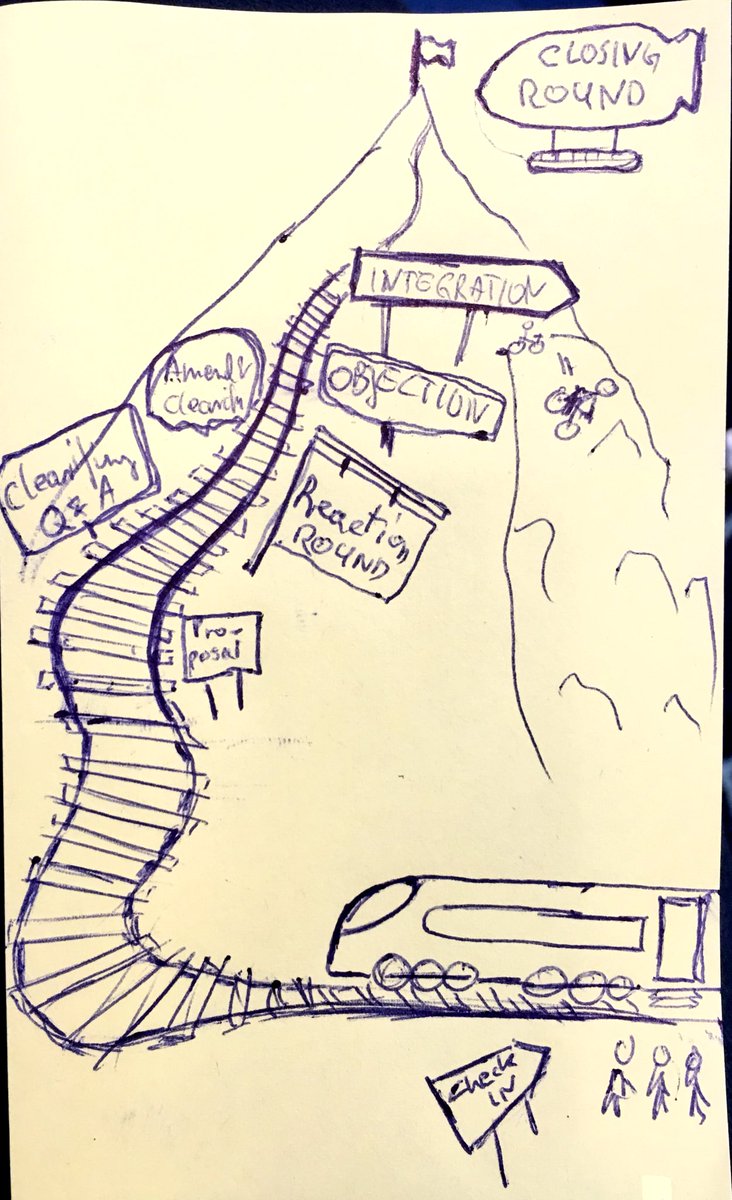 CLOSING
ROUND
INTEGRATION
OBJECTION
Amend &
Clearify
Clearifying
Q & A
Reaction
ROUND
Pro-
posal
Check
IN